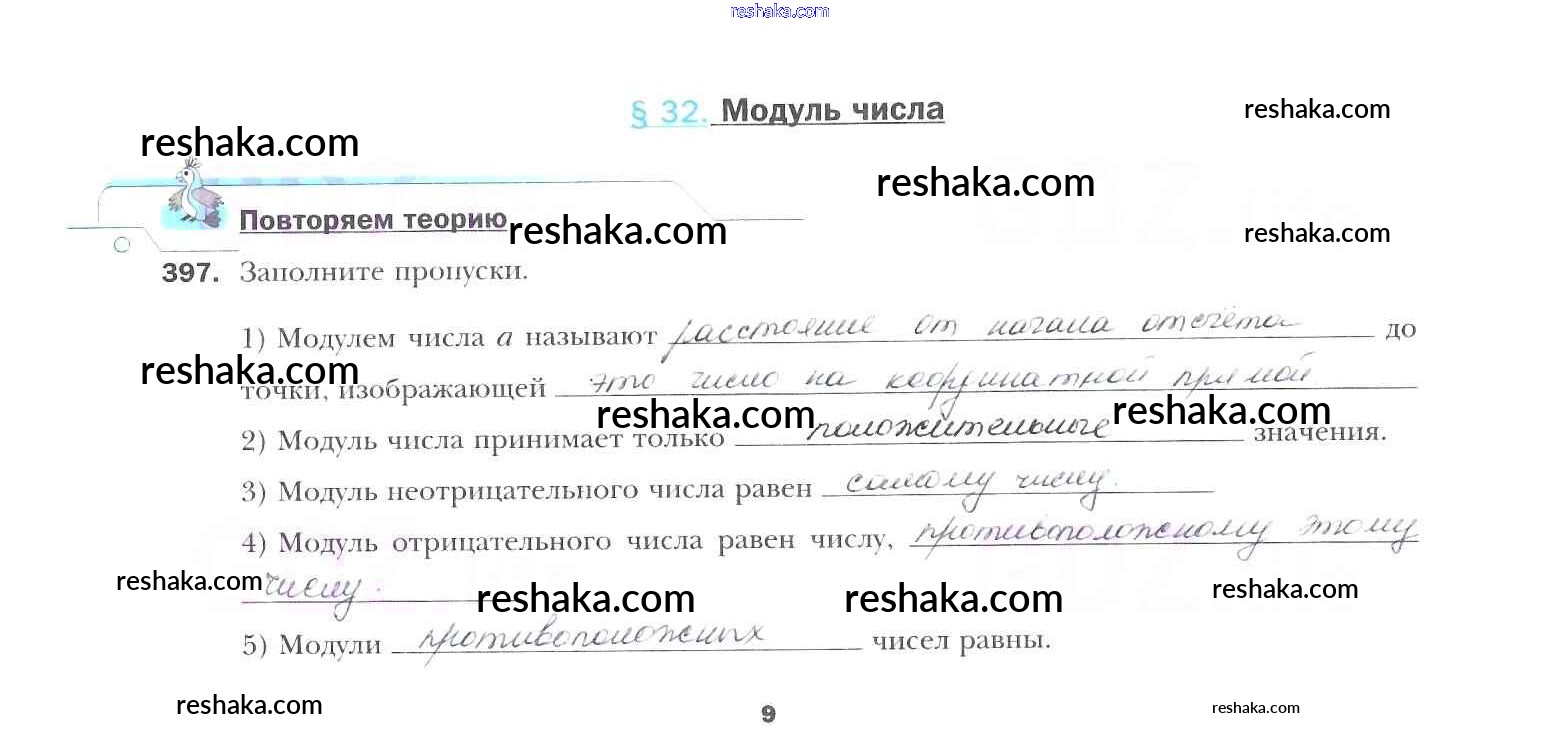 reshaka.com
§ 32. Модуль числа
reshaka.com
reshaka.com
reshaka.com
Повторяем теорию
reshaka.com
reshaka.com
397. Заполните пропуски.
1) Модулем числа a называют расстояние от начала отсчёта до
reshaka.com
точки, изображающей это число на координатной прямой
reshaka.com
reshaka.com
2) Модуль числа принимает только положительные значения.
3) Модуль неотрицательного числа равен самому числу.
4) Модуль отрицательного числа равен числу, противоположному этому
reshaka.com
числу.
reshaka.com
reshaka.com
reshaka.com
5) Модули противоположных чисел равны.
reshaka.com
9
reshaka.com